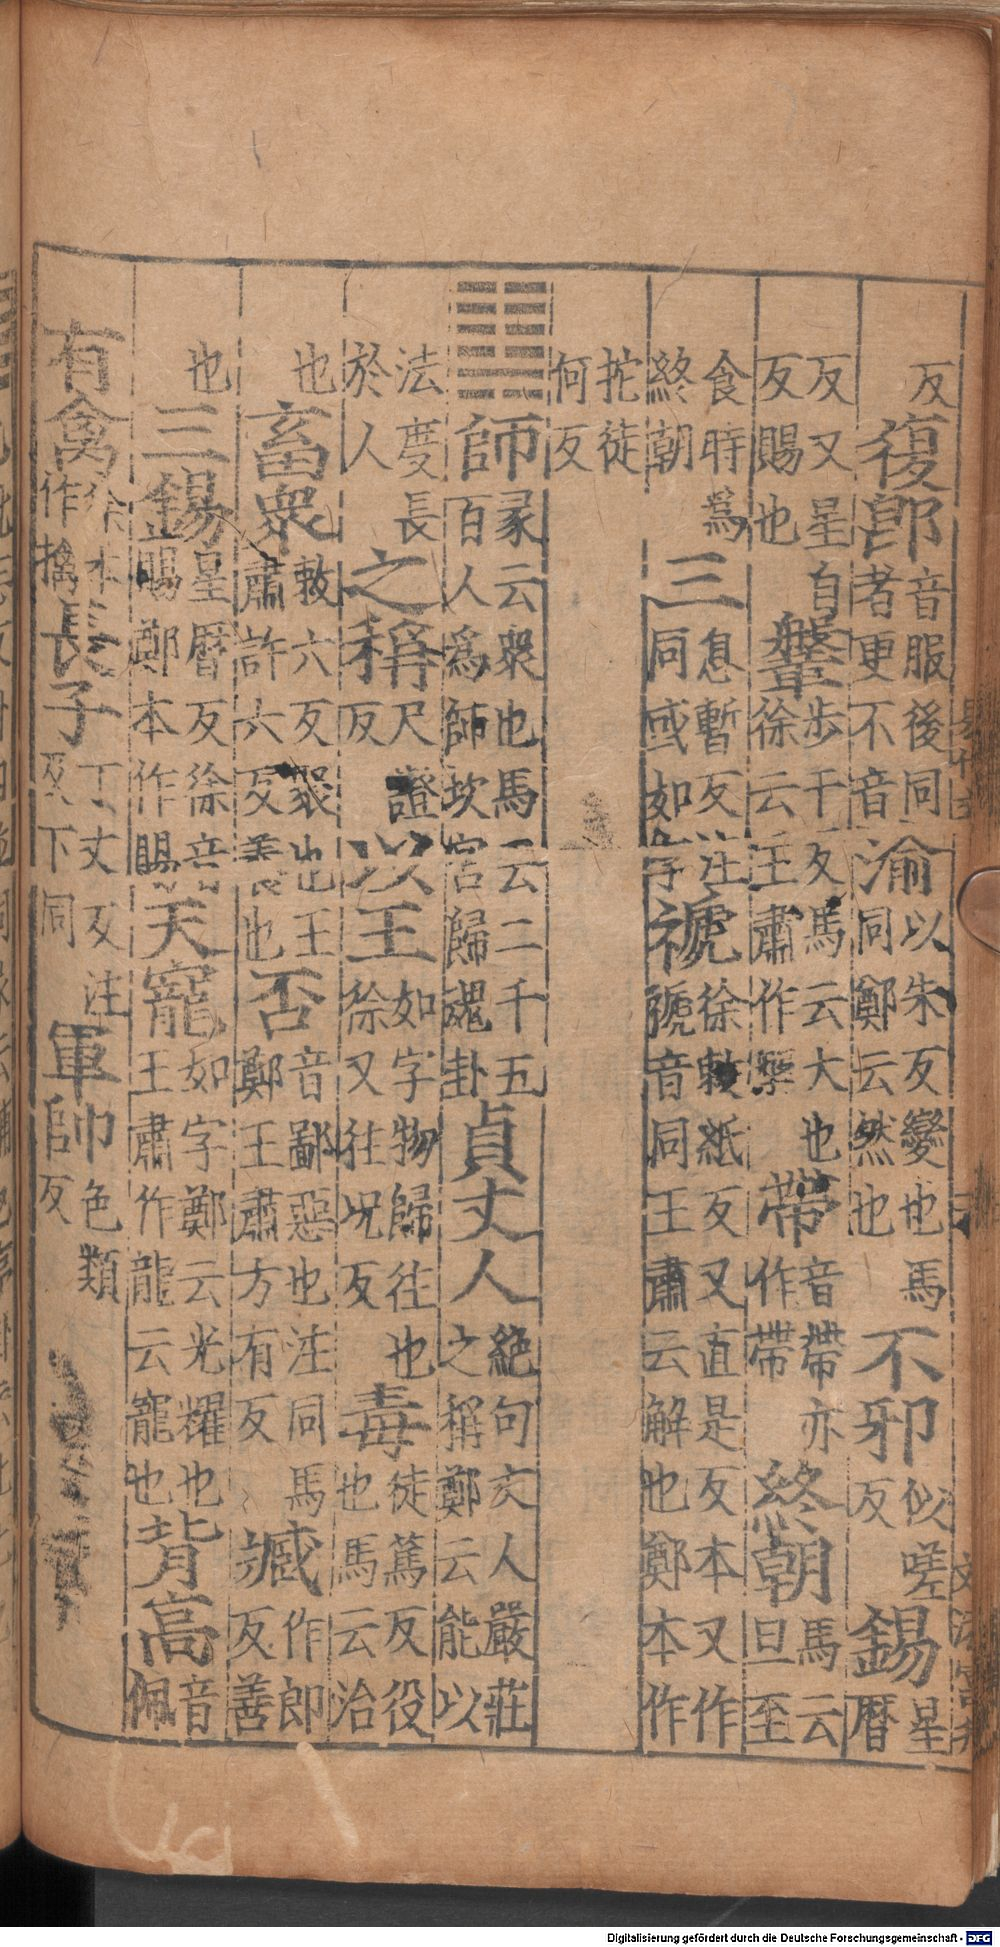 反復即音服後同者更不音渝以朱反變也馬同鄭云然也不邪似嗟反錫星曆
反又星自反賜也鞶步干反馬云大也徐云王肅作槃帶音帶亦作帶終朝馬云旦至
食時爲終朝三息暫反注同或如字褫徐敕紙反又直是反本又作褫音同王肅云解也鄭本作
拕徒何反
師彖云衆也馬云二千五百人爲師坎宮歸魂卦貞丈人絶句丈人嚴莊之稱鄭云能以
法度長於人之稱尺證反以王如字物歸往也徐又往況反毒徒篤反役也馬云治
也畜衆敕六反聚也王肅許六反養也否音鄙惡也注同馬鄭王肅方有反臧作郎反善
也三錫星曆反徐音賜鄭本作賜天寵如字鄭云光耀也王肅作龍云寵也背高音佩
有禽徐本作擒長子丁丈反注及下同軍帥色類反
Digitalisierung gefördert durch die Deutsche Forschungsgemeinschaft - DFG